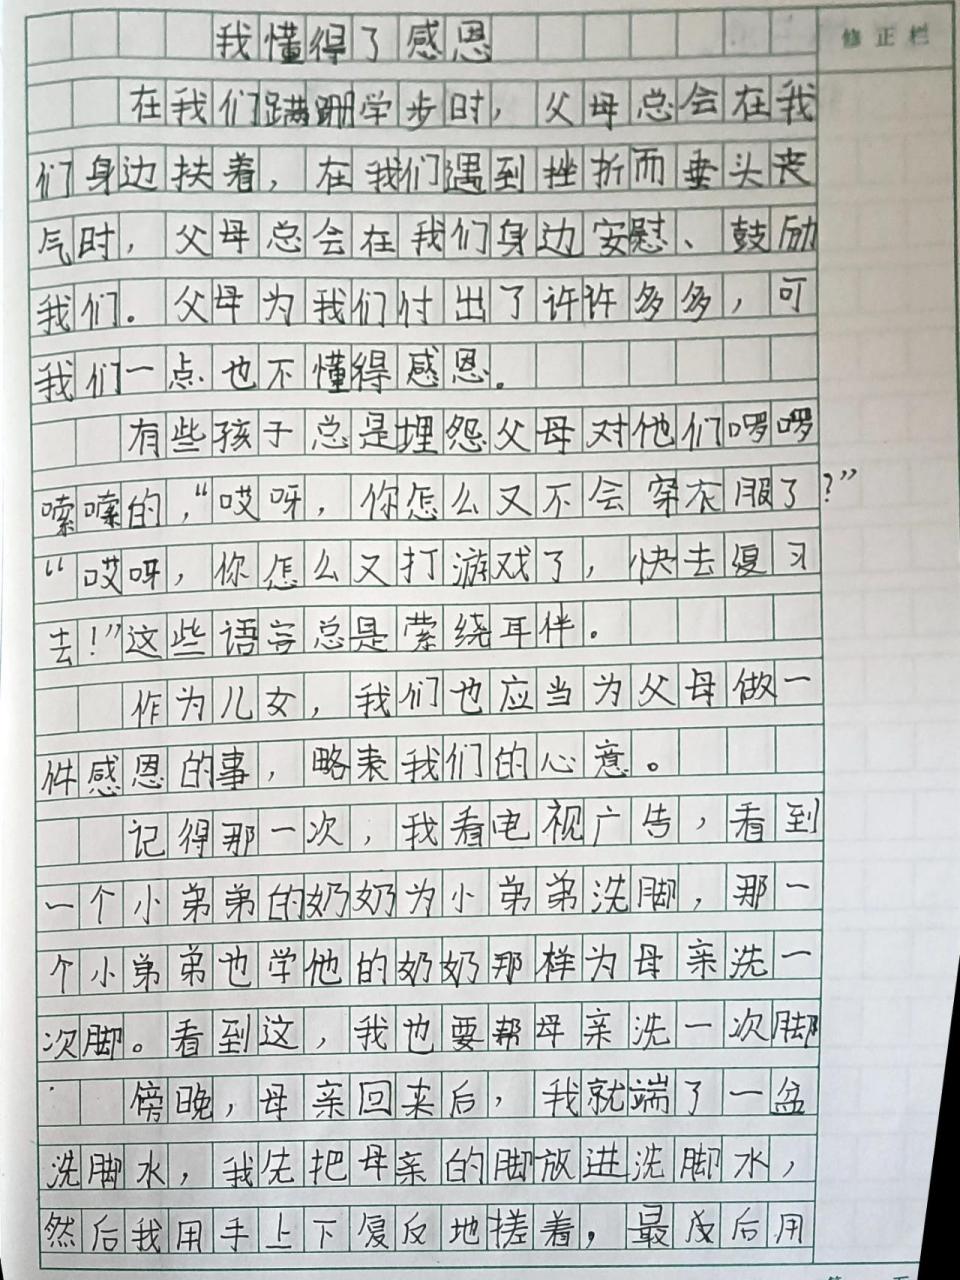 我懂得了感恩
修正栏
在我们蹒跚学步时，父母总会在我
们身边扶着，在我们遇到挫折而垂头丧
气时，父母总会在我们身边安慰、鼓励
我们。父母为我们付出了许许多多，可
我们一点也不懂得感恩。
有些孩子总是埋怨父母对他们啰啰
嗦嗦的，“哎呀，你怎么又不会穿衣服了？”
“哎呀，你怎么又打游戏了，快去复习
去！”这些语言总是萦绕耳伴。
作为儿女，我们也应当为父母做一
件感恩的事，略表我们的心意。
记得那一次，我看电视广告，看到
一个小弟弟的奶奶为小弟弟洗脚，那一
个小弟弟也学他的奶奶那样为母亲洗一
次脚。看到这，我也要帮母亲洗一次脚
傍晚，母亲回来后，我就端了一盆
洗脚水，我先把母亲的脚放进洗脚水，
然后我用手上下复反地搓着，最后用